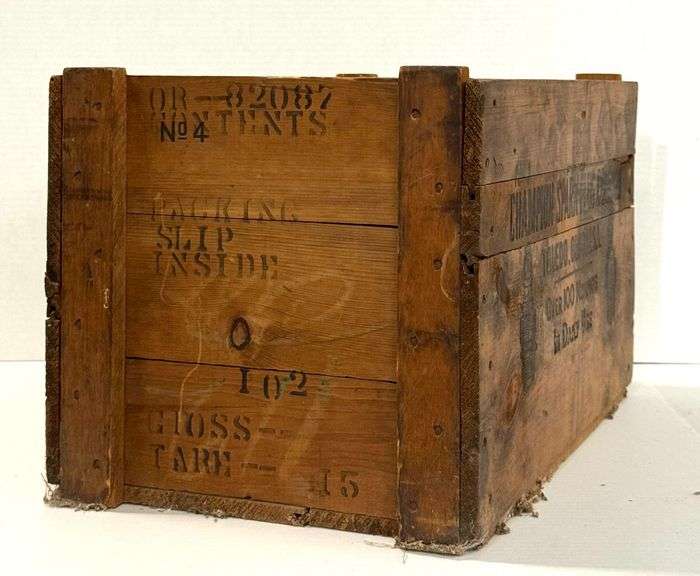 OR—82087
CONTENTS
No 4
PACKING
SLIP
INSIDE
O
102
GROSS--
TARE-- 15
CHAMPION
OVER 100
In Daily Use